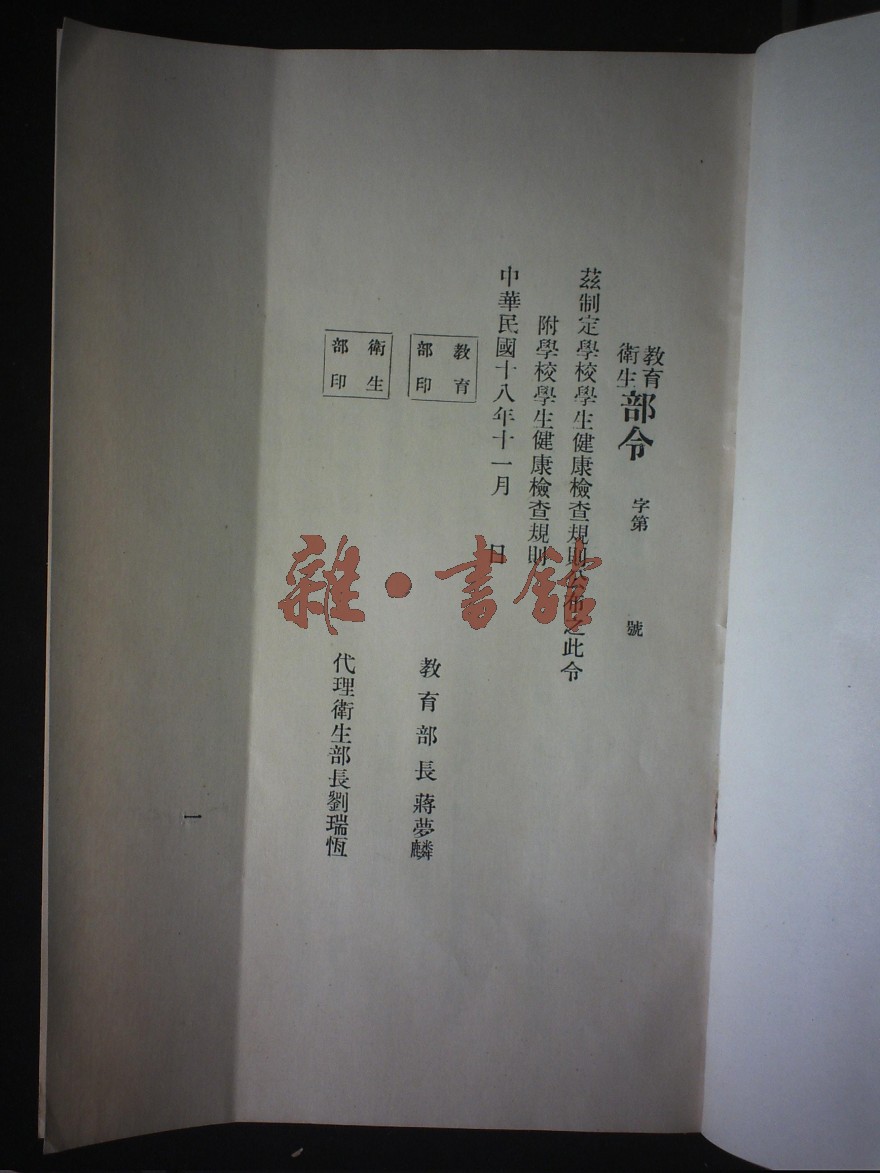 教育
衛生
部令　字第　號
茲制定學校學生健康檢查規則公布之此令
附學校學生健康檢查規則
中華民國十八年十一月　日
教育
部印
教育部長蔣夢麟
衛生
部印
代理衛生部長劉瑞恆
一
雜·書館